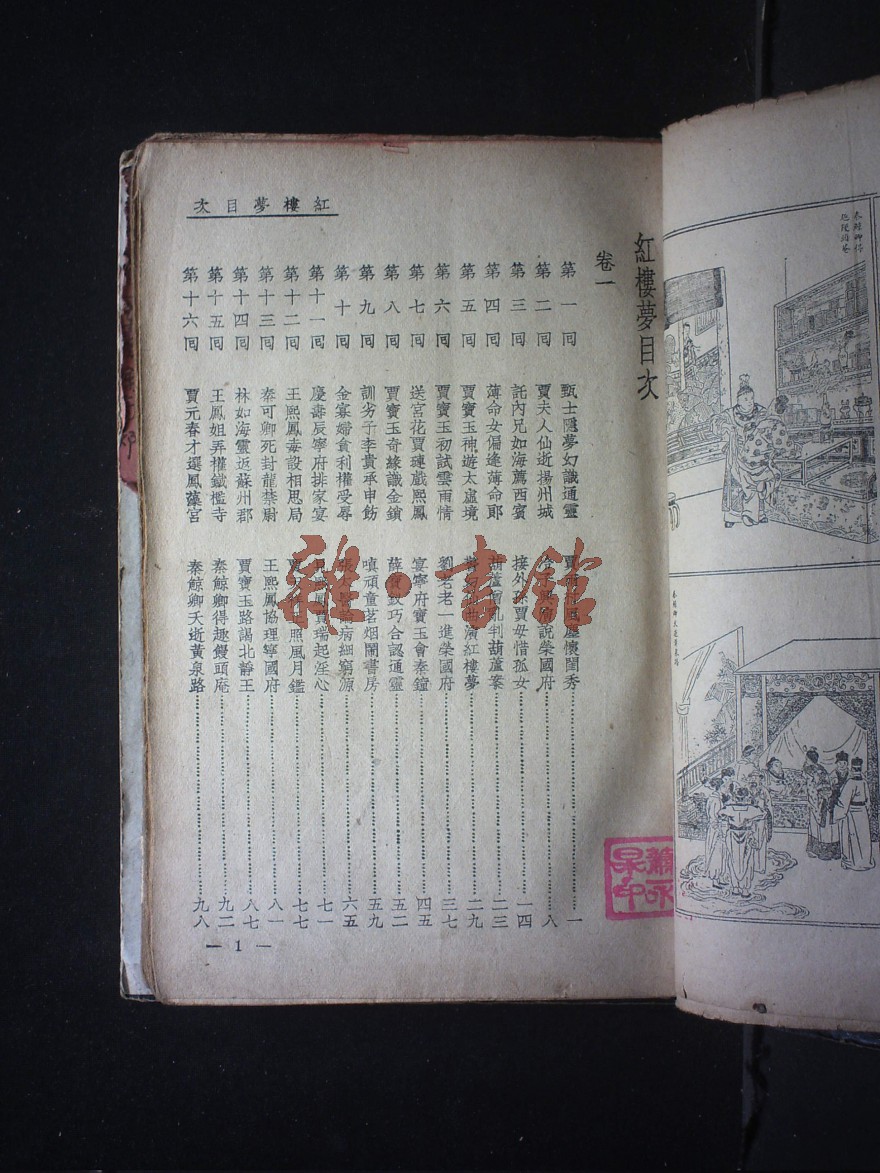 紅樓夢目次
紅樓夢目次
卷一
第一回 甄士隱夢幻識通靈 賈雨村風塵懷閨秀……一
第二回 賈夫人仙逝揚州城 冷子興演說榮國府……八
第三回 託內兄如海薦西賓 接外孫賈母惜孤女……一四
第四回 薄命女偏逢薄命郎 葫蘆僧亂判葫蘆案……二三
第五回 賈寶玉神遊太虛境 警幻仙曲演紅樓夢……二九
第六回 賈寶玉初試雲雨情 劉老老一進榮國府……三七
第七回 送宮花賈璉戲熙鳳 宴寧府寶玉會秦鐘……四五
第八回 賈寶玉奇緣識金鎖 薛寶釵巧合認通靈……五二
第九回 訓劣子李貴承申飭 嗔頑童茗烟鬧書房……五九
第十回 金寡婦貪利權受辱 張太醫論病細窮源……六五
第十一回 慶壽辰寧府排家宴 見熙鳳賈瑞起淫心……七一
第十二回 王熙鳳毒設相思局 賈天祥正照風月鑑……七七
第十三回 秦可卿死封龍禁尉 王熙鳳協理寧國府……八一
第十四回 林如海靈返蘇州郡 賈寶玉路謁北靜王……八七
第十五回 王鳳姐弄權鐵檻寺 秦鯨卿得趣饅頭庵……九二
第十六回 賈元春才選鳳藻宮 秦鯨卿夭逝黃泉路……九八
— 1 —
雜·書館